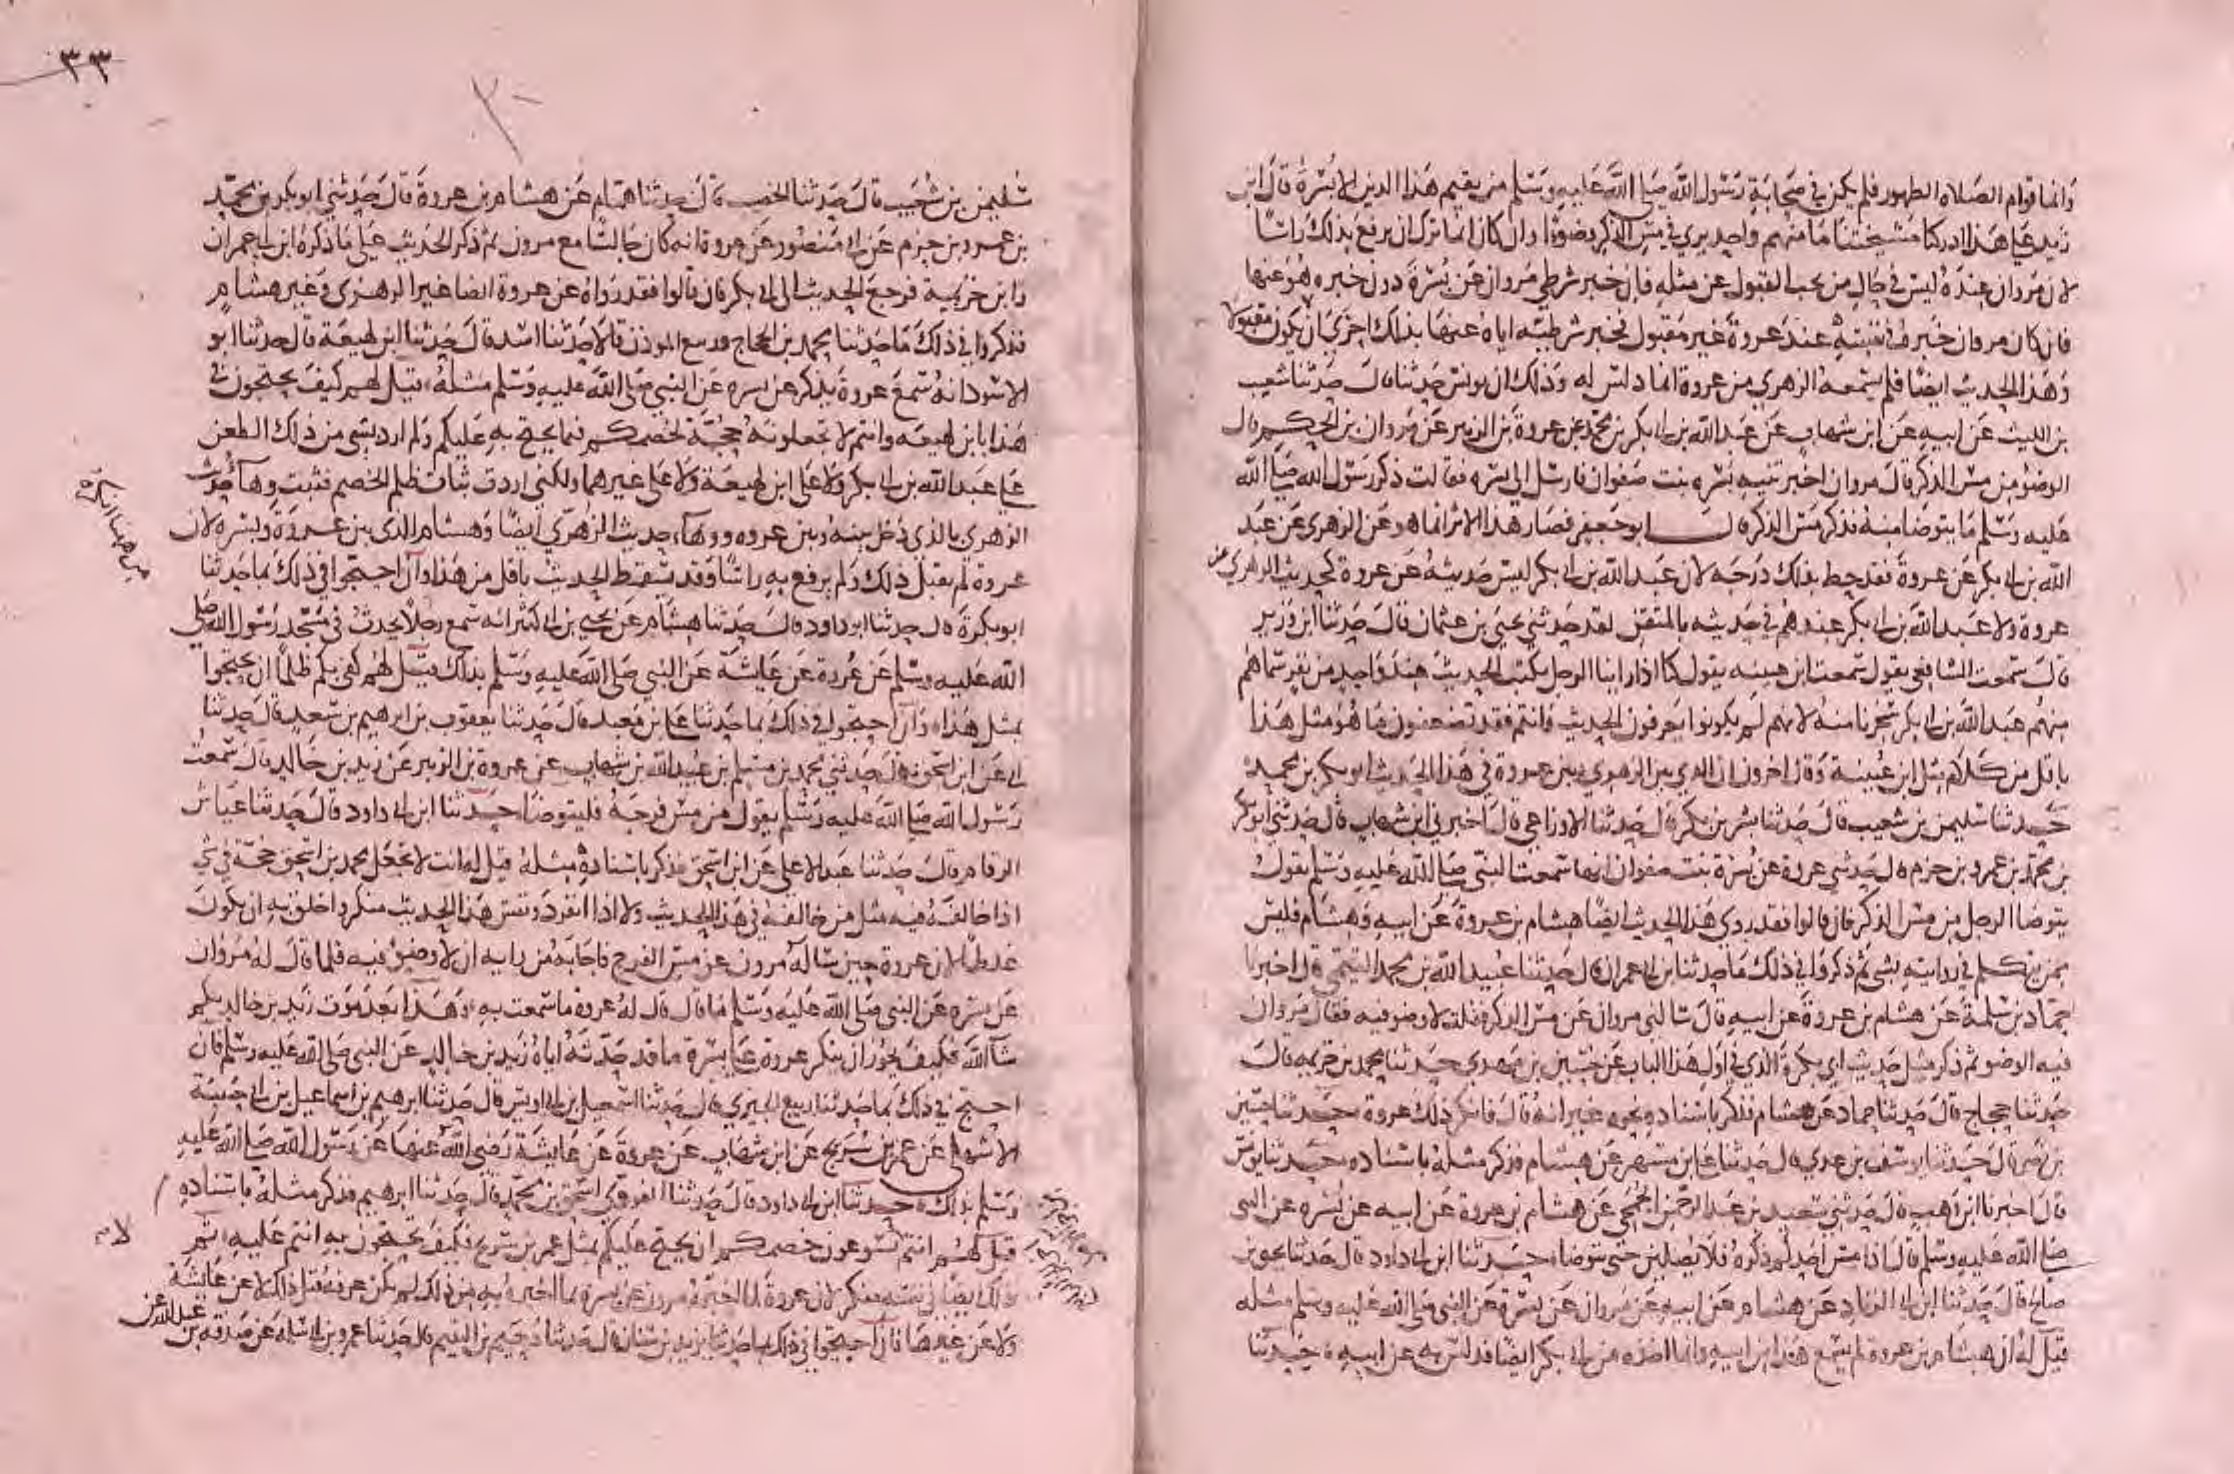 وانما قوام الصلاه الطهور فلم يكن في صحابة رسول الله صلى الله عليه وسلم من يقيم هذا الدين الا بسرة قال ابن
زيد على هذا ادركنا مشيختنا ما منهم واحد يرى في مس الذكر وضوءا وان كان انما ترك ان يرفع بذلك راسا
لان مروان عنده ليس في حال من يجب القبول عن مثله فان خبر شرطي مروان عن بسرة دون خبره هو عنها
فان كان مروان خبره في نفسه عند عروة غير مقبول فخبر شرطيه اياه عنها بذلك احرى ان لا يكون مقبولا
وهذا الحديث ايضا فلم يسمعه الزهري من عروة انما دلس له وذلك ان يونس حدثنا قال حدثنا شعيب
بن الليث عن ابيه عن ابن شهاب عن عبد الله بن ابي بكر بن محمد عن عروة بن الزبير عن مروان بن الحكم قال
الوضوء من مس الذكر قال مروان اخبرتنيه بسره بنت صفوان فارسل الى بسره فقالت ذكر رسول الله صلى الله
عليه وسلم ما يتوضا منه فذكر مس الذكر قال ابو جعفر فصار هذا الاثر انما هو عن الزهري عن عبد
الله بن ابي بكر عن عروة فقد حط بذلك درجه لان عبد الله بن ابي بكر ليس حديثه عن عروة كحديث الزهري عن
عروة ولا عبد الله بن ابي بكر عندهم في حديثه بالمتقن لقد حدثني يحيى بن عثمان قال حدثنا ابن وزير
قال سمعت الشافعي يقول سمعت ابن عيينه يقول كنا اذا راينا الرجل يكتب الحديث عند واحد من نفر سماهم
منهم عبد الله بن ابي بكر سخرنا منه لانهم لم يكونوا يعرفون الحديث وانتم فقد تضعفون ما هو مثل هذا
باقل من كلام مثل ابن عيينة وقال اخرون ان الذي بين الزهري وبين عروة في هذا الحديث ابو بكر بن محمد
حدثنا سليمن بن شعيب قال حدثنا بشر بن بكر قال حدثنا الاوزاعي قال اخبرني ابن شهاب قال حدثني ابو بكر
بن محمد بن عمرو بن حزم قال حدثني عروة عن بسرة بنت صفوان انها سمعت النبي صلى الله عليه وسلم يقول
يتوضا الرجل من مس الذكر فان قالوا فقد روى هذا الحديث ايضا هشام بن عروة عن ابيه وهشام فليس
ممن يتكلم في روايته بشي ثم ذكروا في ذلك ما حدثنا ابن ابي عمران قال حدثنا عبيد الله بن محمد التيمي قال اخبرنا
حماد بن سلمة عن هشام بن عروة عن ابيه قال سالني مروان عن مس الذكر فقلت لا وضو فيه فقال مروان
فيه الوضو ثم ذكر مثل حديث ابي بكرة الذي في اول هذا الباب عن حسين بن مهدي حدثنا محمد بن خزيمه قال
حدثنا حجاج قال حدثنا حماد عن هشام فذكر باسناده نحوه غير انه قال فانكر ذلك عروة حدثنا حسين
بن نصر قال حدثنا يوسف بن عدي قال حدثنا علي بن مسهر عن هشام فذكر مثله باسناده حدثنا يونس
قال اخبرنا ابن وهب قال حدثني سعيد بن عبد الرحمن الجمحي عن هشام بن عروة عن ابيه عن بسره عن النبي
صلى الله عليه وسلم قال اذا مس احدكم ذكره فلا يصلين حتى يتوضا حدثنا ابن ابي داود قال حدثنا يحيى بن
صالح قال حدثنا ابن ابي الزناد عن هشام عن ابيه عن مروان عن بسرة عن النبي صلى الله عليه وسلم مثله
قيل له ان هشام بن عروة لم يسمع هذا من ابيه وانما اخذه من ابي بكر ايضا فدلس به عن ابيه حدثنا
٣٣
سليمن بن شعيب قال حدثنا الخصيب قال حدثنا همام عن هشام بن عروة قال حدثني ابو بكر بن محمد
بن عمرو بن حزم عن عروة انه كان جالسا مع مرون ثم ذكر الحديث على ما ذكره ابن ابي عمران
وابن خزيمة فرجع الحديث الى ابي بكر فان قالوا فقد رواه عن عروة ايضا غير الزهري وغير هشام
فذكروا في ذلك ما حدثنا محمد بن الحجاج وربيع الموذن قالا حدثنا اسد قال حدثنا ابن لهيعة قال حدثنا ابو
الاسود انه سمع عروة يذكر عن بسره عن النبي صلى الله عليه وسلم مثله قيل لهم كيف تحتجون في
هذا بابن لهيعه وانتم لا تجعلونه حجة لخصمكم فيما يحتج به عليكم ولم ارد بشي من ذلك الطعن
على عبد الله بن ابي بكر ولا على ابن لهيعة ولا على غيرهما ولكني اردت بيان ظلم الخصم فثبت وهآ حديث
الزهري بالذي دخل بينه وبين عروه ووهآ حديث الزهري ايضا وهشام الذي بين عروة وبسره لان
عروة لم يقبل ذلك ولم يرفع به راسا وقد يسقط الحديث باقل من هذا وان احتجوا في ذلك بما حدثنا
ابو بكرة قال حدثنا ابو داود قال حدثنا هشام عن يحيى بن ابي كثير انه سمع رجلا يحدث في مسجد رسول الله صلى
الله عليه وسلم عن عروة عن عايشة عن النبي صلى الله عليه وسلم بذلك قيل لهم كفى بكم ظلما ان تحتجوا
بمثل هذا وان احتجوا في ذلك بما حدثنا علي بن معبد قال حدثنا يعقوب بن ابرهيم بن سعد قال حدثنا
ابي عن ابن اسحق قال حدثني محمد بن مسلم بن عبيد الله بن شهاب عن عروة بن الزبير عن زيد بن خالد قال سمعت
رسول الله صلى الله عليه وسلم يقول من مس فرجه فليتوضا حدثنا ابن ابي داود قال حدثنا عياش
الرقام قال حدثنا عبد الاعلى عن ابن اسحق فذكر باسناده مثله قيل له انت لا تجعل محمد بن اسحق حجة في شي
اذا خالفه فيه مثل من خالفه في هذا الحديث ولا اذا انفرد ونفس هذا الحديث منكر واخلق به ان يكون
غلطا لان عروة حين ساله مرون عن مس الفرج فاجابه من رايه ان لا وضو فيه فلما قال له مروان
عن بسره عن النبي صلى الله عليه وسلم ما قال قال له عروة ما سمعت به وهذا بعد موت زيد بن خالد بكم
شآ الله فكيف يجوز ان ينكر عروة على بسرة ما قد حدثه اياه زيد بن خالد عن النبي صلى الله عليه وسلم فان
احتج في ذلك بما حدثنا ربيع الجيزي قال حدثنا اسمعيل بن ابي اويس قال حدثنا ابرهيم بن اسماعيل بن ابي حبيبة
الاشهلي عن عمر بن شريح عن ابن شهاب عن عروة عن عايشة رضي الله عنها عن رسول الله صلى الله عليه
وسلم بذلك حدثنا ابن ابي داود قال حدثنا الفروي اسحق بن محمد قال حدثنا ابرهيم فذكر مثله باسناده
قيل لهم انتم لا تسوغون خصمكم ان يحتج عليكم بمثل عمر بن شريح فكيف تحتجون به انتم عليه ثم
ذلك ايضا في نفسه منكر لان عروة لما اخبره مرون عن بسرة بما اخبره به من ذلك لم يكن عرفه قبل ذلك لا عن عايشة
ولا عن غيرها فان احتجوا في ذلك بما حدثنا يزيد بن سنان قال حدثنا دحيم بن اليتيم قال حدثنا عمرو بن ابي سلمه عن صدقه بن
عبد الله عن